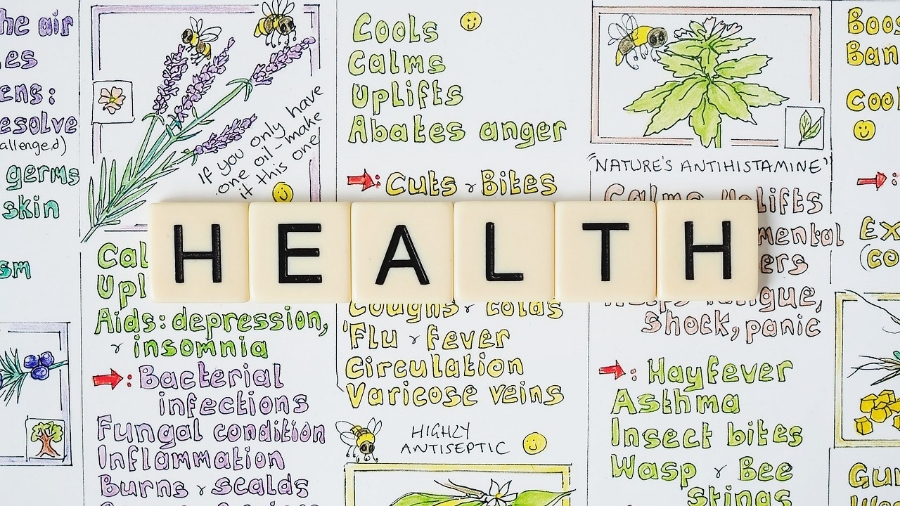 he air
es
ens:
esolve
allenged)
germs
skin
sm
If you only have
one oil - make
it this one
Cal
Upl
Aids: depression,
& insomnia
: Bacterial
infections
Fungal condition
Inflammation
Burns & scalds
Cools
Calms
Uplifts
Abates anger
: Cuts & Bites
HEALTH
Coughs & colds
'Flu & fever
Circulation
Varicose veins
HIGHLY
ANTISEPTIC
"NATURE'S ANTIHISTAMINE"
Calms Uplifts
mental
ers
Helps fatigue,
shock, panic
: Hayfever
Asthma
Insect bites
Wasp & Bee
stings
Boos
Ban
Cool
:
Ex
(co
Gum